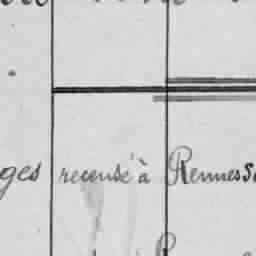 ges recensé à Rennes